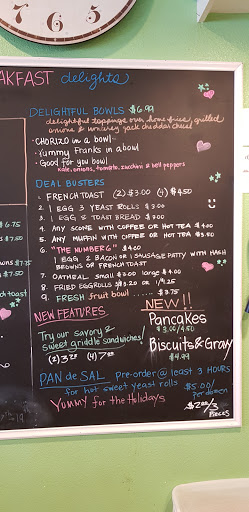 AKFAST delights
DELIGHTFUL BOWLS $6.99
delightful toppings over home fries, grilled
onions & monterey jack cheddar cheese
- CHORIZO in a bowl
- Yummy Franks in a bowl
- Good for you bowl
kale, onions, tomato, zucchini & bell peppers
DEAL BUSTERS
1. FRENCH TOAST (2) $3.00 (4) $4.50
2. 1 EGG 3 YEAST ROLLS $3.00
3. 1 EGG 2 TOAST BREAD $3.00
4. ANY SCONE WITH COFFEE OR HOT TEA $4.00
5. ANY MUFFIN WITH COFFEE OR HOT TEA $3.50
6. "THE NUMBER 6" $4.00
1 EGG 2 BACON OR 1 SAUSAGE PATTY WITH HASH
BROWNS OR FRENCH TOAST
7. OATMEAL small $3.00 large $4.00
8. FRIED EGGROLLS 3/$3.20 OR 1/$1.25
9. FRESH fruit bowl ..... $3.75
NEW FEATURES
Try our savory &
sweet griddle sandwiches!
(2) 3.75 (4) 7.00
NEW!!
Pancakes
$3.00/4.50
Biscuits & Gravy
$4.99
PAN de SAL Pre-order @ least 3 HOURS
for hot sweet yeast rolls $5.00/
per dozen
Yummy for the Holidays
$2.00/3
PIECES
$6.75
$7.50
$7.50
d toast